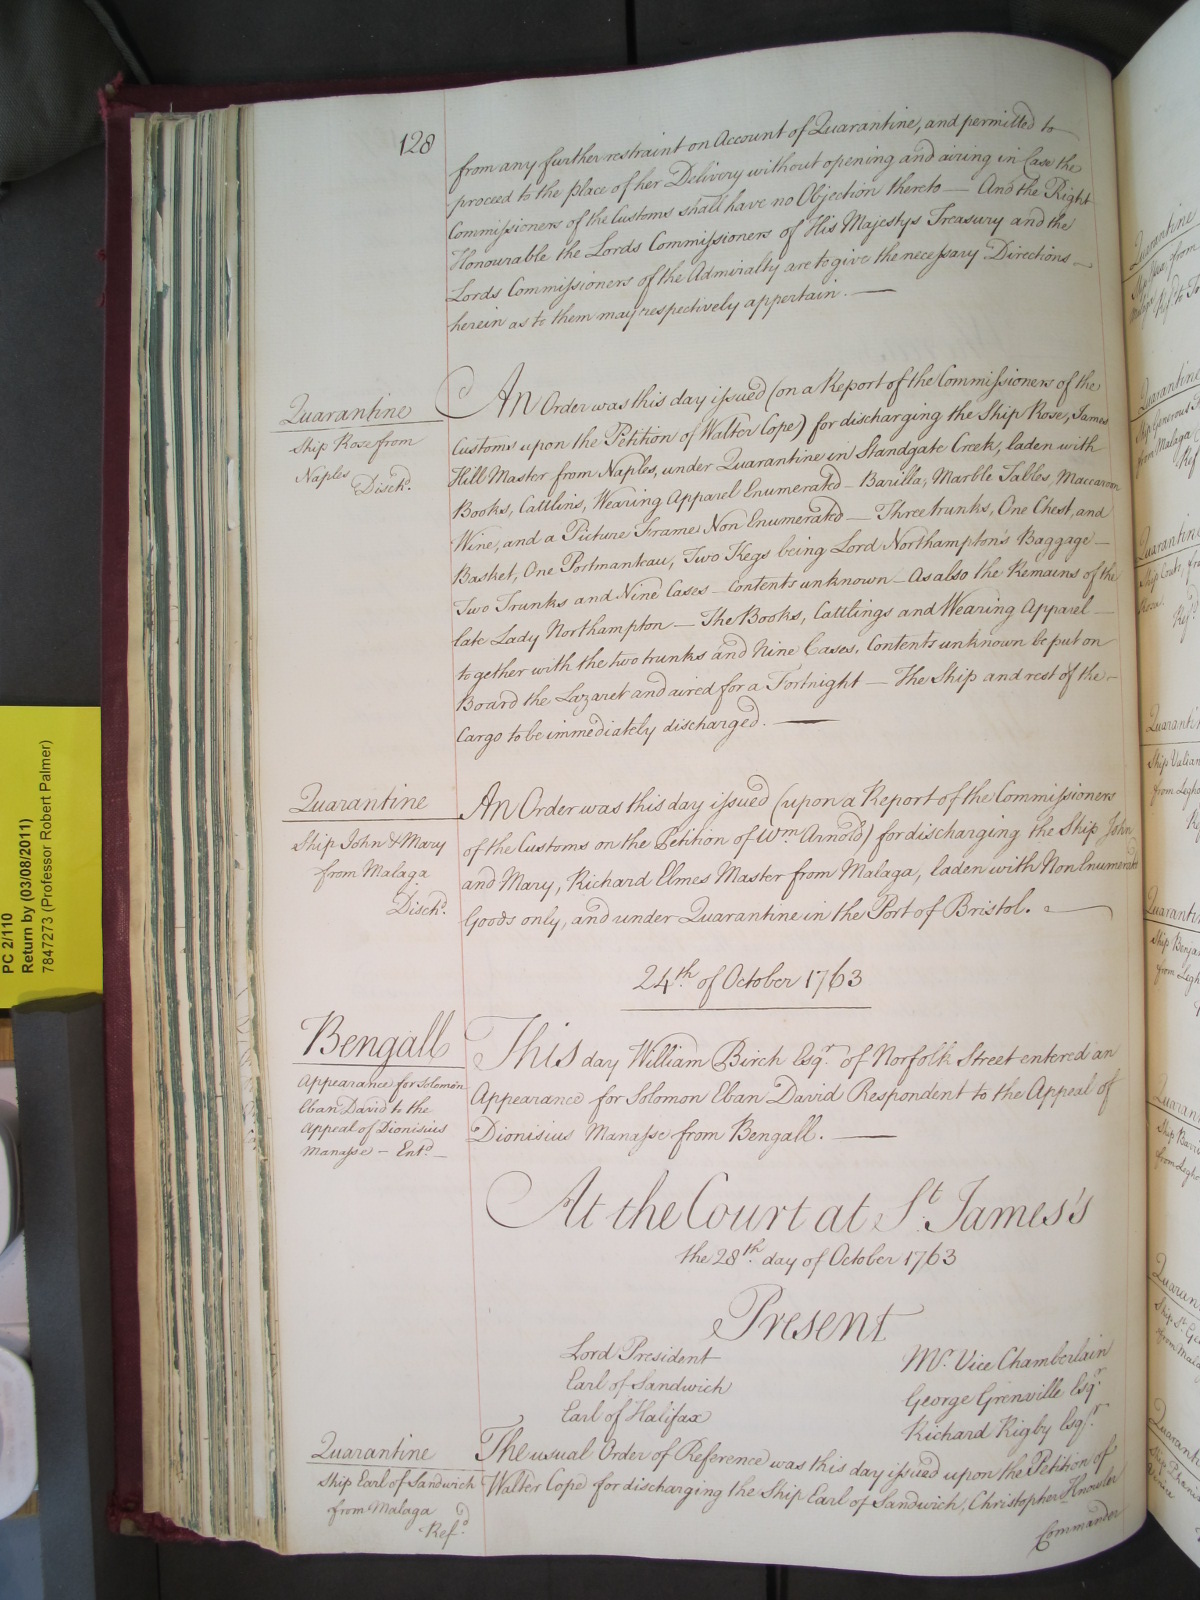 128
from any further restraint on Account of Quarantine, and permitted to
proceed to the place of her Delivery without opening and airing in Case the
Commissioners of the Customs shall have no Objection thereto — And the Right
Honourable the Lords Commissioners of His Majestys Treasury and the
Lords Commissioners of the Admiralty are to give the necessary Directions —
herein as to them may respectively appertain. —
Quarantine
Ship Rose from
Naples
Disch.d
An Order was this day issued (on a Report of the Commissioners of the
Customs upon the Petition of Walter Cope) for discharging the Ship Rose, James
Hill Master from Naples, under Quarantine in Standgate Creek, laden with
Books, Cattlins, Wearing Apparel Enumerated — Barilla, Marble Tables, Maccaroon
Wine, and a Picture Frame Non Enumerated — Three trunks, One Chest, and
Basket, One Portmanteau, Two Kegs being Lord Northampton's Baggage —
Two Trunks and Nine Cases — Contents unknown — As also the Remains of the
late Lady Northampton — The Books, Cattlings and Wearing Apparel —
together with the two trunks and Nine Cases, Contents unknown be put on
Board the Lazaret and aired for a Fortnight — The Ship and rest of the —
Cargo to be immediately discharged. —
Quarantine
Ship John & Mary
from Malaga
Disch.d
An Order was this day issued (upon a Report of the Commissioners
of the Customs on the Petition of Wm. Arnold) for discharging the Ship John
and Mary, Richard Elmes Master from Malaga, laden with Non Enumerated
Goods only, and under Quarantine in the Port of Bristol.
24.th of October 1763
Bengall
Appearance for Solomon
Eban David to the
Appeal of Dionisius
Manasse — Ent.d —
This day William Birch Esq.r of Norfolk Street entered an
Appearance for Solomon Eban David Respondent to the Appeal of
Dionisius Manasse from Bengall. —
At the Court at S.t James's
the 28.th day of October 1763
Present
Lord President
Earl of Sandwich
Earl of Halifax
Mr. Vice Chamberlain
George Grenville Esq.r
Richard Rigby Esq.r
Quarantine
Ship Earl of Sandwich
from Malaga
Ref.d
The usual Order of Reference was this day issued upon the Petition of
Walter Cope for discharging the Ship Earl of Sandwich, Christopher Knowler
Commander
PC 2/110
Return by (03/08/2011)
7847273 (Professor Robert Palmer)